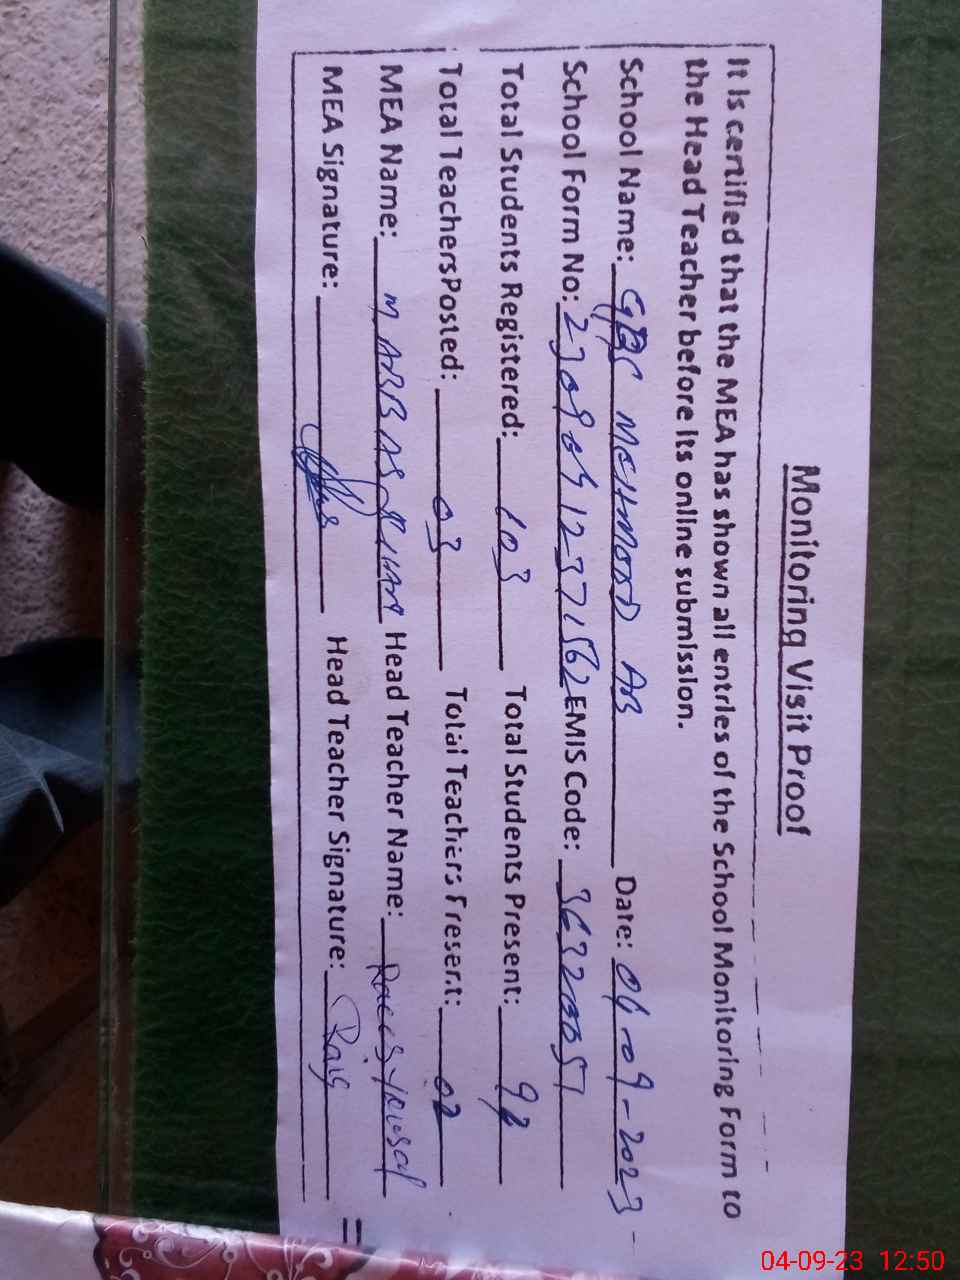 Monitoring Visit Proof
It is certified that the MEA has shown all entries of the School Monitoring Form to
the Head Teacher before its online submission.
School Name: GBPS MEHMOOD AB Date: 04-09-2023
School Form No: EMIS Code:
Total Students Registered: 103 Total Students Present: 92
Total Teachers Posted: 03 Total Teachers Present: 02
MEA Name: M ABBAS KHAN Head Teacher Name: Raees Yousaf
MEA Signature: Head Teacher Signature: Rais
04-09-23 12:50